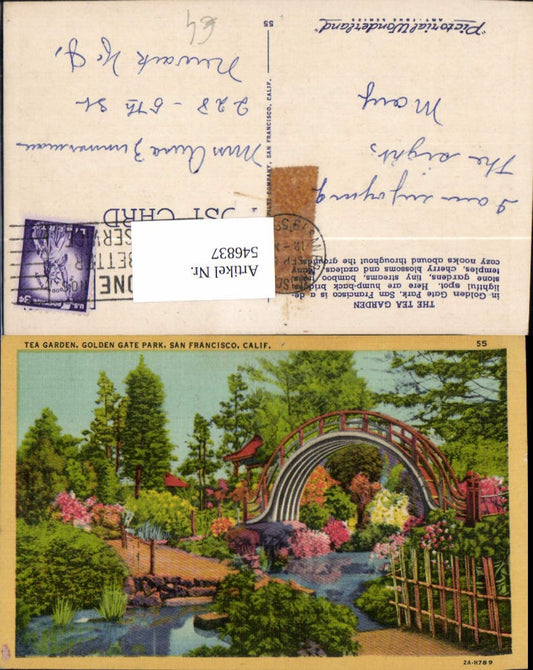 64
55
"Pictorial Wonderland"
ART-TONE SERIES
THE TEA GARDEN
in Golden Gate Park, San Francisco is a de-
lightful spot. Here are hump-back bridges,
stone gardens, tiny streams, bamboo
temples, cherry blossoms and azaleas. Many
cozy nooks abound throughout the grounds.
I am enjoying
The sights
Mary
CARD COMPANY, SAN FRANCISCO, CALIF.
POST CARD
Miss Anna Zimmerman
228 - 5th St
Newark N. J.
Artikel Nr.
546837
3¢
TEA GARDEN, GOLDEN GATE PARK, SAN FRANCISCO, CALIF.
55
2A-H789